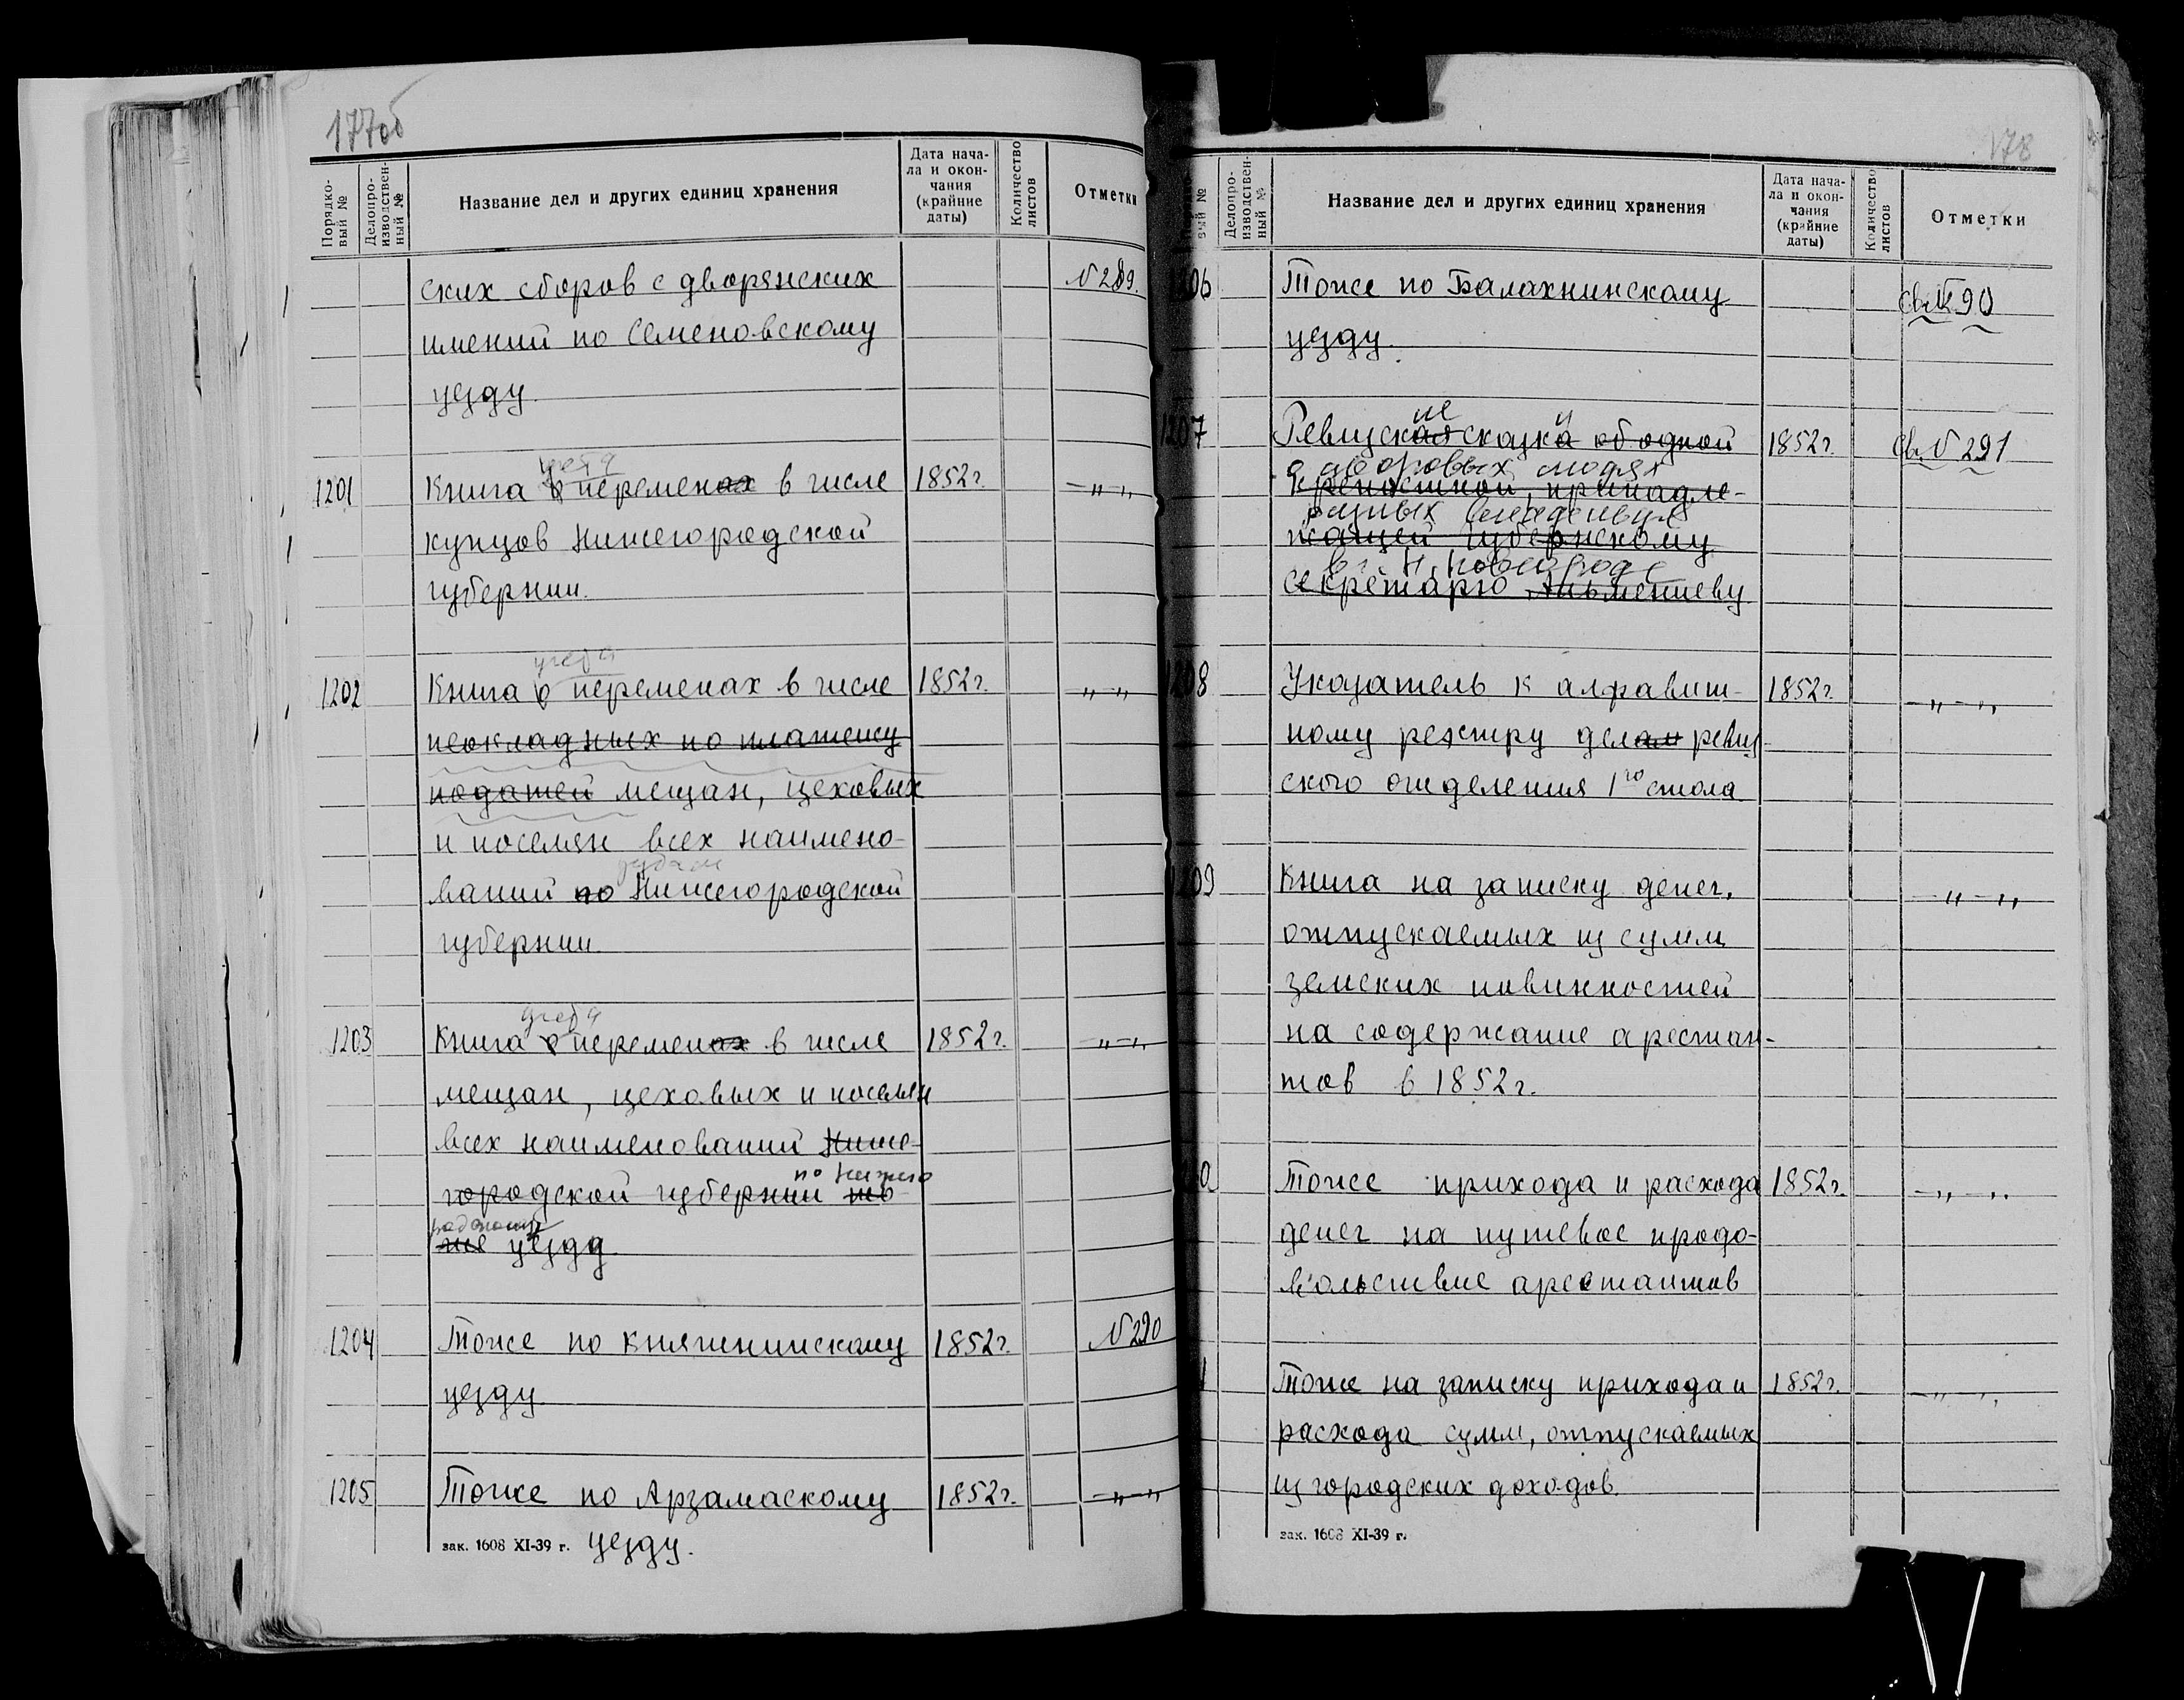 177об
Порядко-
вый №
Делопро-
изводствен-
ный №
Название дел и других единиц хранения
Дата нача-
ла и окон-
чания
(крайние
даты)
Количество
листов
Отметки
ских сборов с дворянских
№ 289.
имений по Семеновскому
уезду.
учета
1201 Книга о переменах в числе 1852 г. –„–„
купцов Нижегородской
губернии.
учета
1202 Книга о переменах в числе 1852 г. „–„
неокладных по платежу
податей мещан, цеховых
и поселян всех наимено-
ваний по Нижегородской
губернии.
учета
1203 Книга о переменах в числе 1852 г. –„–„
мещан, цеховых и поселян
всех наименований Ниже-
по Нижего
городской губернии то
родскому
же уезду.
1204 Тоже по Княгининскому 1852 г. № 290
уезду.
1205 Тоже по Арзамаскому 1852 г. –„–„
зак. 1608 XI-39 г. уезду.
178
вый №
Делопро-
изводствен-
ный №
Название дел и других единиц хранения
Дата нача-
ла и окон-
чания
(крайние
даты)
Количество
листов
Отметки
06 Тоже по Балахнинскому св. № 290
уезду.
ие и
1207 Ревизская сказка об одной 1852 г. св. № 291
о дворовых людях
крепостной, принадле-
разных владельцев
жащей губернскому
в г. Н. Новгороде
секретарю
1208 Указатель к алфавит- 1852 г. –„–„
ному реэстру делам ревиз
ского отделения 1го стола
1209 Книга на записку денег, –„–„
отпускаемых из сумм
земских повинностей
на содержание арестан-
тов в 1852 г.
0 Тоже прихода и расхода 1852 г. –„–„
денег на путевое продо-
вольствие арестантов
1 Тоже на записку прихода и 1852 г. –„–„
расхода сумм, отпускаемых
из городских доходов.
зак. 1608 XI-39 г.